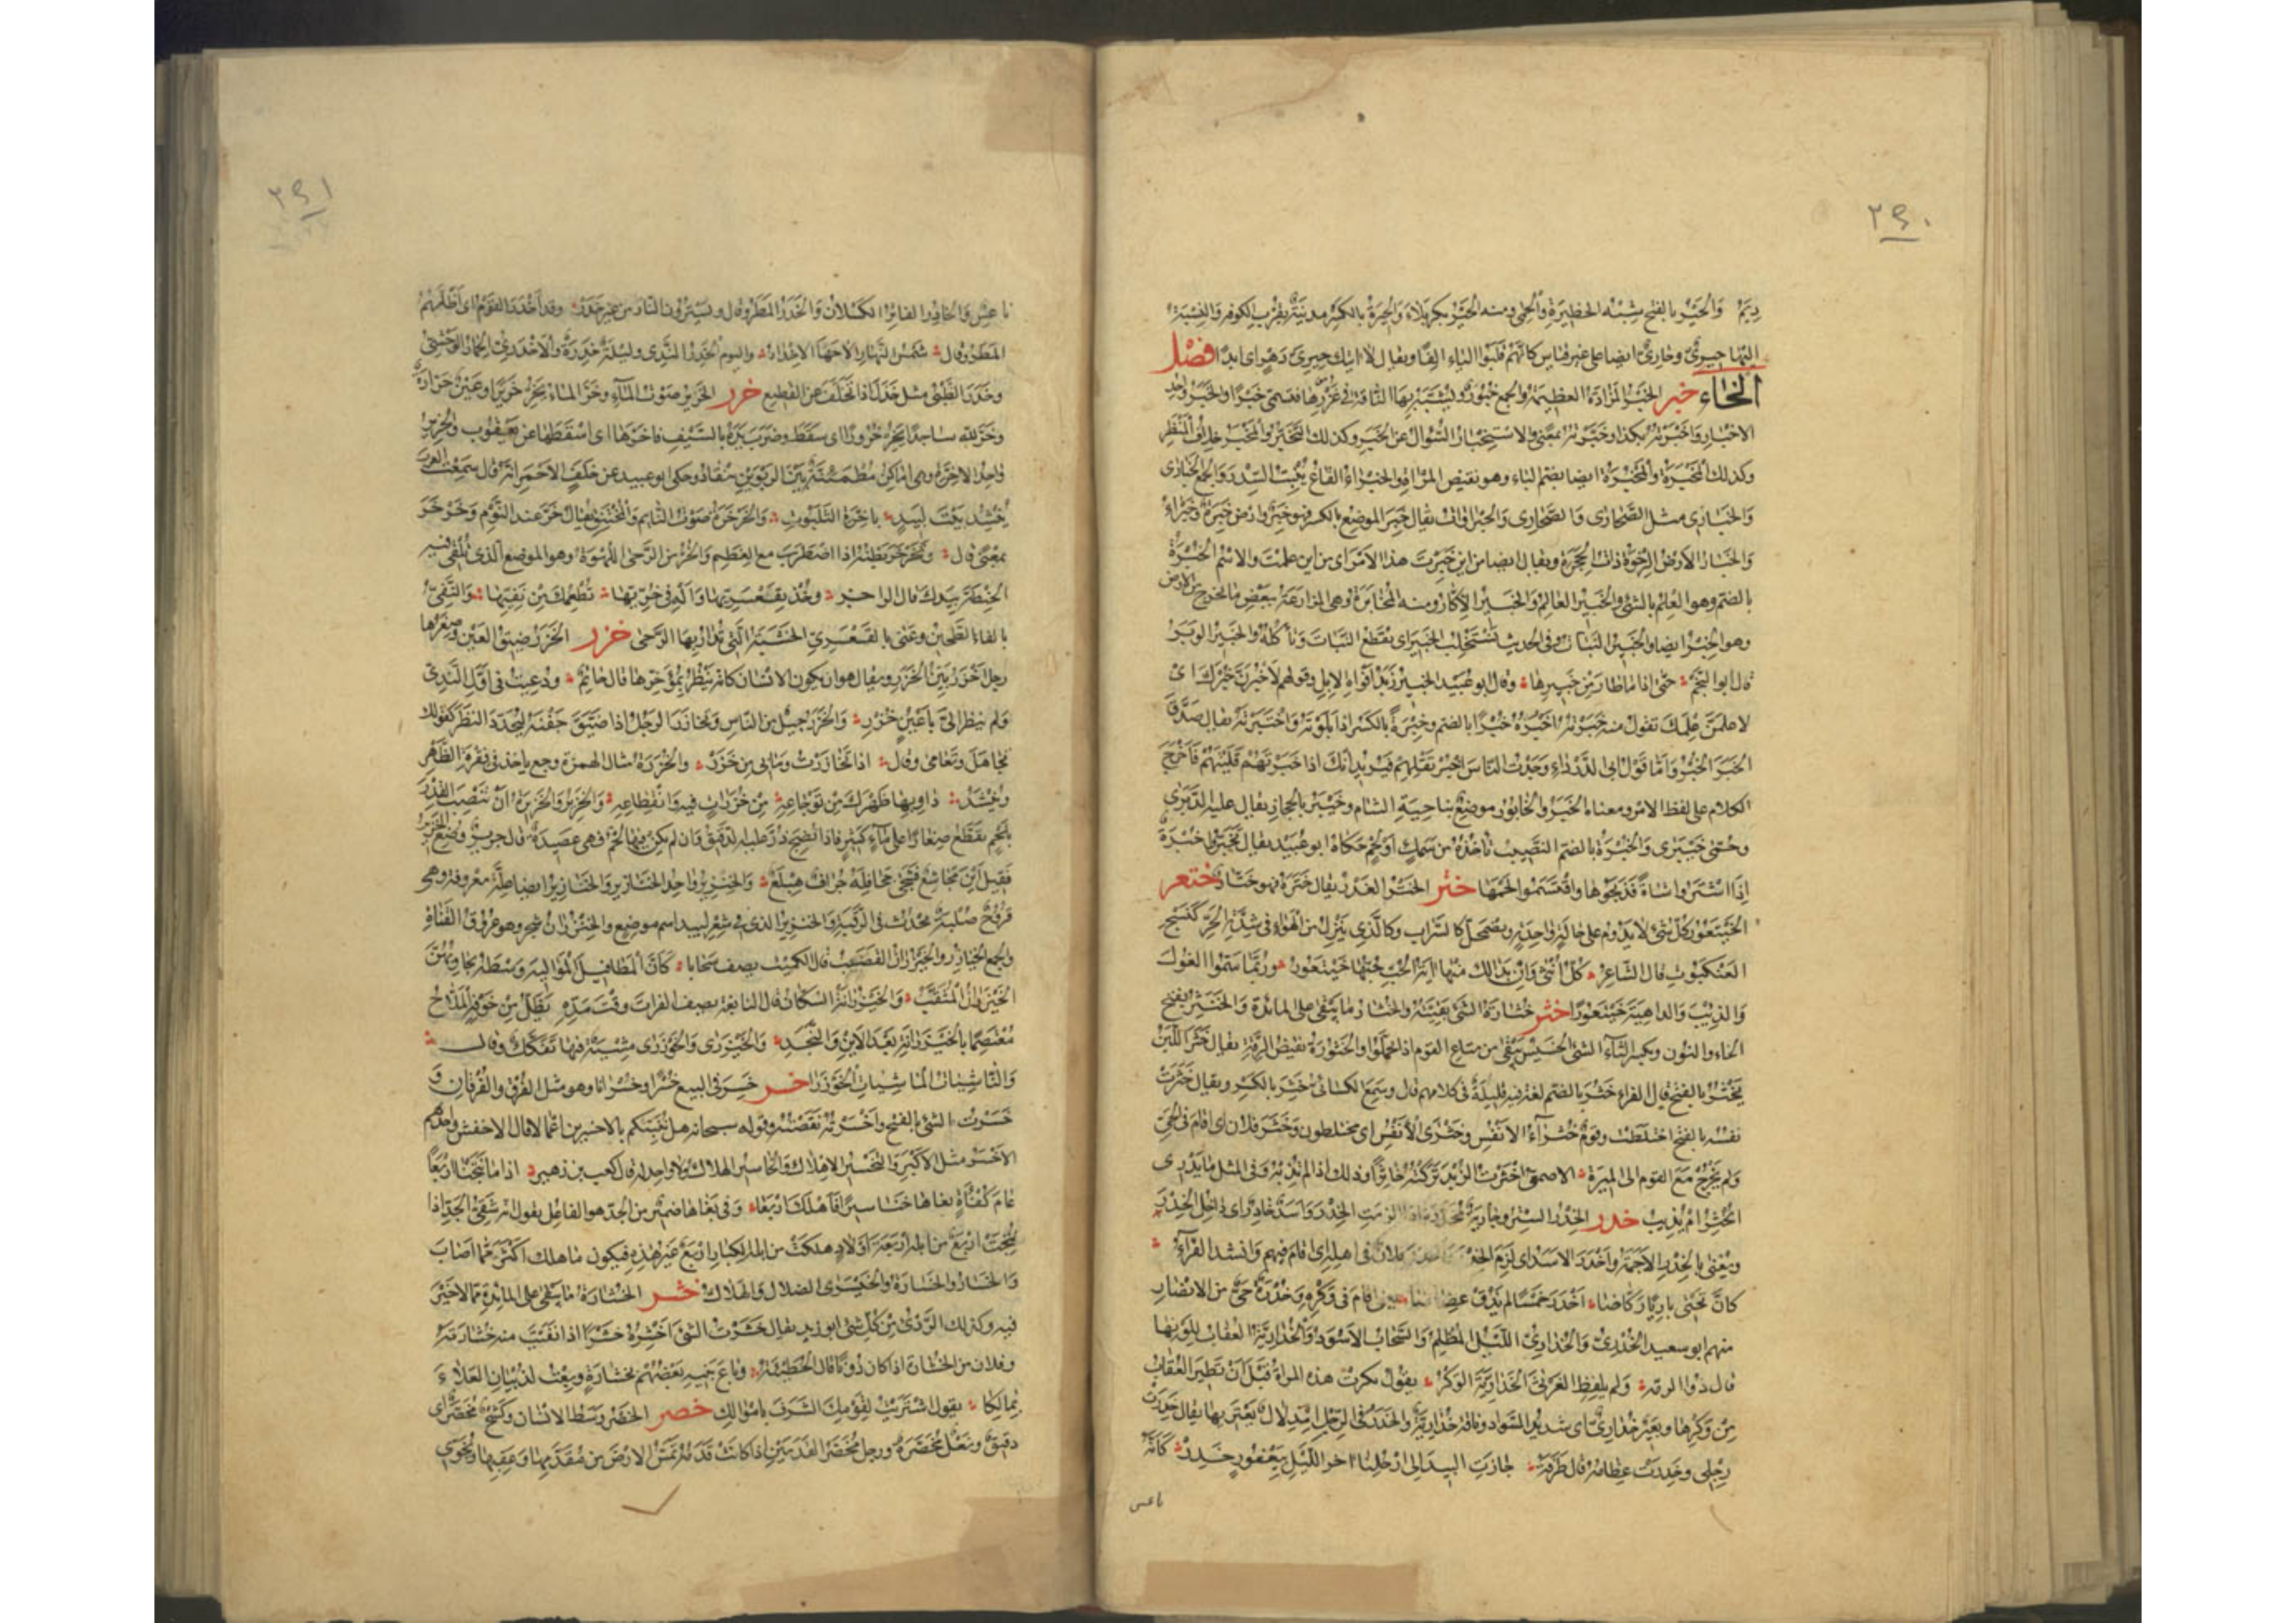 ٢٩٠
دِيَمٌ وَالحَيْرُ بالفتح شِبْهُ الحظِيرَةِ وَالحِمَى ومنه الحَيْرُ بكربلاء وَالحِيرَةُ بالكسر مدينَةٌ بقُربِ الكوفة وَالنِسْبَة
اليها حِيرِيٌّ وحَارِيٌّ ايضا على غير قياس كانهم قلبوا الياء الفا ويقال لا اتيك حِيرِيَّ دَهرٍ اى ابدا فصل
الخاء خبر الخَبْرُ المَزَادَةُ العظيمَةُ والجمع خُبُورٌ وتُشَبَّهُ بها الناقة فى غُزْرِها فتسمى خَبْرًا والخَبَرُ واحد
الاخبار وَاخْبَرْتُهُ بكذا وخَبَّرْتُهُ بمعنًى والاستخبار السُؤال عن الخبر وكذلك التَخَبُّرُ والمَخْبَرُ خلاف المَنْظَرِ
وكذلك المَخْبَرَةُ وَالمَخْبُرَةُ ايضا بضم الباء وهو نقيض المَرْآةِ والخَبْرَاءُ القاعُ يُنْبِتُ السِدْرَ وَالجمع الخَبَارَى
وَالخَبَارِى مثل الصَحَارَى والصَحَارِى وَالخَبْرَاوات يقال خَبِرَ الموضع بالكسر فهو خَبِرٌ وارض خَبِرَةٌ وخَبْرَاءُ
والخَبَارُ الأرضُ الرِخْوَةُ ذاتُ الجِحَرَةِ ويقال ايضا من اين خَبِرتَ هذا الامر اى من اين علمت والاسم الخُبْرُ
بالضم وهو العِلم بالشئ والخَبِيرُ العالِمُ وَالخَبِيرُ الأكّارُ ومنه المُخَابَرَةُ وهى المزارعة ببعض ما يخرج من الارض
وهو الخِبْرُ ايضا والخَبِيرُ النَبَات وفى الحديث نَسْتَخْلِبُ الخَبِيرَ اى نقطع النَباتَ وَنأكُلُهُ والخَبِيرُ الوَبَرُ
قال ابو النجم حتى اذا ما طار من خَبِيرِها وقال ابو عُبَيد الخَبِيرُ زَبَدُ افواهِ الابل وقولهم لاَخْبُرَنَّ خَبَرَكَ اى
لاعلمنَّ عِلمَكَ تقول منه خَبَرْتُهُ اَخْبُرُهُ خُبْرًا بالضم وخِبْرَةً بالكسر اذا بَلَوْتَهُ وَاخْتَبَرْتَهُ يقال صَدَّقَ
الخَبَرَ الخُبْرُ وَاَمّا قَوْلُ ابى الدَّرْدَاءِ وَجَدْتُ الناسَ اخْبُرْ تَقْلِهِمْ فيريد انك اذا خَبَرْتَهُمْ قَلَيْتَهُمْ فاَخْرَجَ
الكلام على لفظ الامر ومعناه الخَبَرُ والخابُورُ موضعٌ بناحية الشام وخَيْبَرُ بالحجاز يقال عليه الدَبَرَى
وحُمَّى خَيْبَرَى وَالخُبْرَةُ بالضم النَصِيبُ تاْخُذُهُ من سَمَكٍ اَوْ لَحْمٍ حكاهُ ابو عُبَيد يقال تَخَبَّرُوا خُبْرَةً
اِذَا اشْتَرَوْا شاةً فَذَبَحُوها واقْتَسَمُوا لحمَهَا ختر الخَتْرُ الغَدْرُ يقال خَتَرَهُ فهو خَتّارٌ ختعر
الخَيْتَعُورُ كلّ شىءٍ لا يدوم على حالة واحدة ويضمحل كالسَّراب وكالذى ينزل من الهَوَاءِ فى شِدّة الحَرِّ كَنَسْجِ
العَنْكَبُوتِ قال الشاعر كُلُّ اُنْثَى وَاِنْ بَدَا لك مِنها آيَةُ الحُبِّ حُبُّها خَيْتَعُورُ وربّما سَمَّوُا الغُولَ
وَالذِئْبَ وَالداهيةَ خَيْتَعُورًا خثر خُثَارَةُ الشئ بَقِيَّتُهُ والخُثَارُ ما يَبْقَى على المائدة وَالخَنْثَرُ بفتح
الخاء والنون وبكسر الثاء الشئ الخسيس يَبْقَى من متاع القوم اذا تحمّلوا والخُثُورَةُ نقيض الرِقَّة يقال خَثَرَ اللَبَنُ
يَخْثُرُ بالفتح قال الفراء خَثُرَ بالضم لغة فيه قليلة فى كلامهم قال وسمع الكسائى خَثِرَ بالكسر ويقال خَثَرَتْ
نفسُه بالفتح اختلطت وقومٌ خُثَرَآءُ الاَنْفُسِ وخَثْرَى الأنْفُسِ اى مختلطون وخَثَرَ فلان اى اقام فى الحَىِّ
وَلم يَخْرُجْ مَعَ القوم الى المِيرَة الاصمعى اَخْثَرْتُ الزُبْدَ تَرَكْتُهُ خَاثِرًا وذلك اذا لم تُذِبْهُ وفى المثل ما يَدْرِى
اَيُخْثِرُ اَمْ يُذِيبُ خدر الخِدْرُ السِتْرُ وجارية مُخَدَّرَةٌ اذا لزمت الخِدْرَ وَاَسَدٌ خَادِرٌ اى داخل الخِدْرِ
ويُعْنَى بالخِدْرِ الاَجَمَةُ واَخْدَرَ الاسَدُ اى لَزِمَ الخِدْرَ فلان فى اهله اى اقام فيهم وانشد الفَرَّاءُ
كَانَّ تَحْتِى بازِيًا رَكّاضَا اَخْدَرَ خَمْسًا لم يَذُقْ عضاضا يعنى اقام فى وَكْرِهِ وَخُدْرَةُ حىٌّ من الانصارِ
منهم ابو سعيد الخُدْرِىُّ وَالخُدَارِىُّ اللَّيْلُ المُظْلِمُ وَالسَحابُ الاَسْوَدُ وَالخُدَارِيَّةُ العُقابُ للونها
قال ذو الرمة وَلم يَلْفِظِ الغَرْثَى الخُدَارِيَّةَ الوَكْرُ يقول بكرت هذه المراة قَبْلَ اَنْ تَطِيرَ العُقَابُ
مِنْ وَكْرِها وبَعِيرٌ خُدَارِىٌّ اى شديدُ السَّوادِ وناقة خُدَارِيَّة والخَدَرُ فى الرِّجل امْذِلالٌ يَعْتَرِيها يقال خَدِرَتْ
رِجْلِى وخَدِرَتْ عِظامُهُ قال طَرَفَة جَازَتِ البِيدَ اِلَى اَرْحُلِنَا آخِرَ اللَّيْلِ بِيَعْفُورٍ خَدِرْ كَانَّهُ
ناعس
٢٩١
ناعِسٌ وَالخادِرُ الفاتِرُ الكَسْلَانُ وَالخَدَرُ المَطَرُ وقال ويَسْتُرُونَ النارَ من غير خَدَرْ وقد اَخْدَرَ القَوْمُ اى اَظَلَّهُمُ
المَطَرُ وقال شَمْسُ النَهَارِ الاحَهَا الاِخْدَارُ واليوم الخَدِرُ النَدِى ولَيْلَةٌ خَدِرَةٌ والاَخْدَرِىُّ الحِمَارُ الوَحْشِىُّ
وخَدَرَ الظَبْىُ مثل خَذَلَ اذا تَخَلَّفَ عن القطيع خرر الخَرِيرُ صَوْتُ المَآءِ وخَرَّ المَاءُ يَخِرُّ خَرِيرًا وعَيْنٌ خَرّارَةٌ
وخَرَّ لله ساجدًا يَخِرُّ خُرُورًا اى سَقَطَ وضَرَبَ يَدَهُ بالسَّيْفِ فاَخَرَّها اى اَسْقَطَها عن يَعْقُوب والخَرِيرُ
واحِدُ الاَخِرَّةِ وهى اَماكِنُ مُطْمَئِنَّةٌ بَيْنَ الرَبْوَيْنِ تنقاد وحكى ابو عبيد عن خَلَفٍ الاَحْمَرِ انه قال سَمِعْتُ العرب
تُنْشِدُ بيت لَبِيدٍ باَخِرَّةِ الثَلَبُوتِ وَالخَرْخَرَةُ صَوْتُ النائم وَالمُخْتَنِقِ يقال خَرَّ عند النَوْمِ وَخَرْخَرَ
بمعنى قال وتَخَرْخَرَ بَطْنُهُ اذا اضطرَبَ مع العِظَمِ وَالخُرُّ من الرَحَى اللُهْوَةُ وهو الموضع الذى تُلْقَى فيه
الحِنْطَةُ بيدك قال الراجز وخُذْ بِقَعْسَرِيِّها وَاَلْهِ فى خُرِّيِّها تُطْعِمْكَ مِنْ نَفِيِّها وَالنَفِىُّ
بالفاء الطَحِينُ وعَنَى بالقَعْسَرِىِّ الخشَبَةَ التى تُدَارُ بها الرَحَى خزر الخَزَرُ ضِيقُ العَيْنِ وصِغَرُها
رجل اَخْزَرُ بَيِّنُ الخَزَرِ ويقال هو ان يكون الانسان كانه يَنْظُرُ بِمُؤْخِرِها قال حَاتِمٌ ودُعِيتُ فى اُولَى النَدِىِّ
وَلم يُنْظَرْ اِلَىَّ بِاَعْيُنٍ خُزْرِ وَالخَزَرُ جِيلٌ من الناس وتخازَرَ الرجل اذا ضَيَّقَ جَفْنَهُ لِيُحَدِّدَ النظَرَ كقولك
تجاهَلَ وتَعَامَى وقال اذا تَخَازَرْتُ وَمَا بى مِنْ خَزَرْ وَالخُزَرَةُ مثال الهمزة وجع ياخذ فى فَقْرَةِ الظَهْرِ
ويُنْشَد دَاوِ بها ظَهْرَكَ مِنْ تَوْجَاعِهِ مِنْ خُزَرَاتٍ فيه وَانْقِطَاعِهِ وَالخَزِيرُ والخَزِيرَةُ اَنْ تُنْصَبَ القِدْرُ
بِلَحْمٍ يُقَطَّعُ صِغَارًا على مَآءٍ كَثِيرٍ فاذا نَضِجَ ذُرَّ عليه الدَقِيقُ وَاِن لم يكن فيها لَحْمٌ فهى عَصِيدَةٌ قال جرير وُضِعَ الخَزِيرُ
فَقِيلَ اَيْنَ مُجَاشِعٌ فَشَحَى جَحَافِلَهُ جُرَافٌ هِبْلَعُ وَالخِنْزِيرُ وَاحِدُ الخَنَازِيرِ وَالخَنَازِيرُ ايضا عِلَّةٌ معروفة وهى
قُرُوحٌ صُلْبَةٌ تَحْدُثُ فى الرَقَبَةِ وَالخِنزِيرُ الذى فى شِعْرِ لَبِيد اسم موضع والخَيْزُرَانُ شجر وهو عُرُوقُ القَنَاةِ
والجمع الخَيَازِرُ والخَيْزُرَانُ القَصَبُ قال الكميت يصف سَحابا كَانَّ المَطَافِيلَ المَوَالِيهَ وَسْطَهُ يُجَاوِبُهُنَّ
الخَيْزُرَانُ المُثَقَّبُ وَالخَيْزُرَانَةُ السُكَّانُ قال النابغة يصف الفرات وقت مَدِّهِ يَظَلُّ مِنْ خَوْفِهِ المَلَّاحُ
مُعْتَصِمًا بالخَيْزُرَانَةِ بَعْدَ الاَيْنِ وَالنَجَدِ وَالخَيْزَرَى وَالخَوْزَرَى مِشْيَةٌ فيها تَفَكُّكٌ وقال
وَالنّاشِئَاتِ المَاشِيَاتِ الخَوْزَرَى خسر خَسِرَ فى البيع خُسْرًا وخُسْرَانا وهو مثل الفُرْقِ والفُرْقَانِ وَ
خَسَرْتُ الشئ بالفتح واَخْسَرْتُهُ نَقَصْتُهُ وقوله سبحانه هل نُنَبِّئُكُم بالاخسرين اعمالا قال الاخفش واحِدُهم
الاَخْسَرُ مثل الاَكْبَرِ وَالتَخْسِيرُ الاِهْلَاكُ وَالخَنَاسِيرُ الهُلَّاكُ ولا واحد له قال كعب بن زهير اذا ما نُتِجْنَا اَرْبَعًا
عَامَ كَفْأَةٍ بغاها خَنَاسِيرًا فاَهْلَكَ اَرْبَعَا وَفى بَغَاهَا ضميرٌ من الجَدّ هو الفاعل يقول انه شَقِىُّ الجَدِّ اذا
نُتِجَتْ اَرْبَعٌ من ابله اربعة اَوْلَادٍ هلكَتْ من ابله الكِبار اَرْبَعٌ غير هذه فيكون ما هلك اكثر مما اصاب
وَالخَسَارُ والخَسَارَةُ والخَيْسَرَى الضلال وَالهلاك خشر الخُشَارَةُ ما يَبْقَى على المائدة مما لا خير
فيه وكذلك الرَدِىُّ من كل شئ ابو زيد يقال خَشَرْتُ الشئ اَخْشِرُهُ خَشْرًا اذا نَقَّيْتَ منه خُشَارَتَهُ
وفلان من الخُشَارَة اذا كان دُونًا قال الحُطَيْئَةُ وباع بَنِيهِ بَعْضُهُمْ بخُشَارَةٍ وبِعْتَ لذُبْيَانَ العَلَاءَ
بِمالِكَا يقول اشْتَرَيْتَ لِقَوْمِكَ الشَرَفَ باموالك خصر الخَصْرُ وَسَطُ الانسان وكَشْحٌ مُخَصَّرٌ اى
دقيق ونَعْلٌ مُخَصَّرَةٌ ورجل مُخَصَّرُ القَدَمَيْنِ اذا كانَتْ قَدَمُهُ تَمَسُّ الارْضَ من مُقَدَّمِها وعَقِبِها ويُخَوِّى